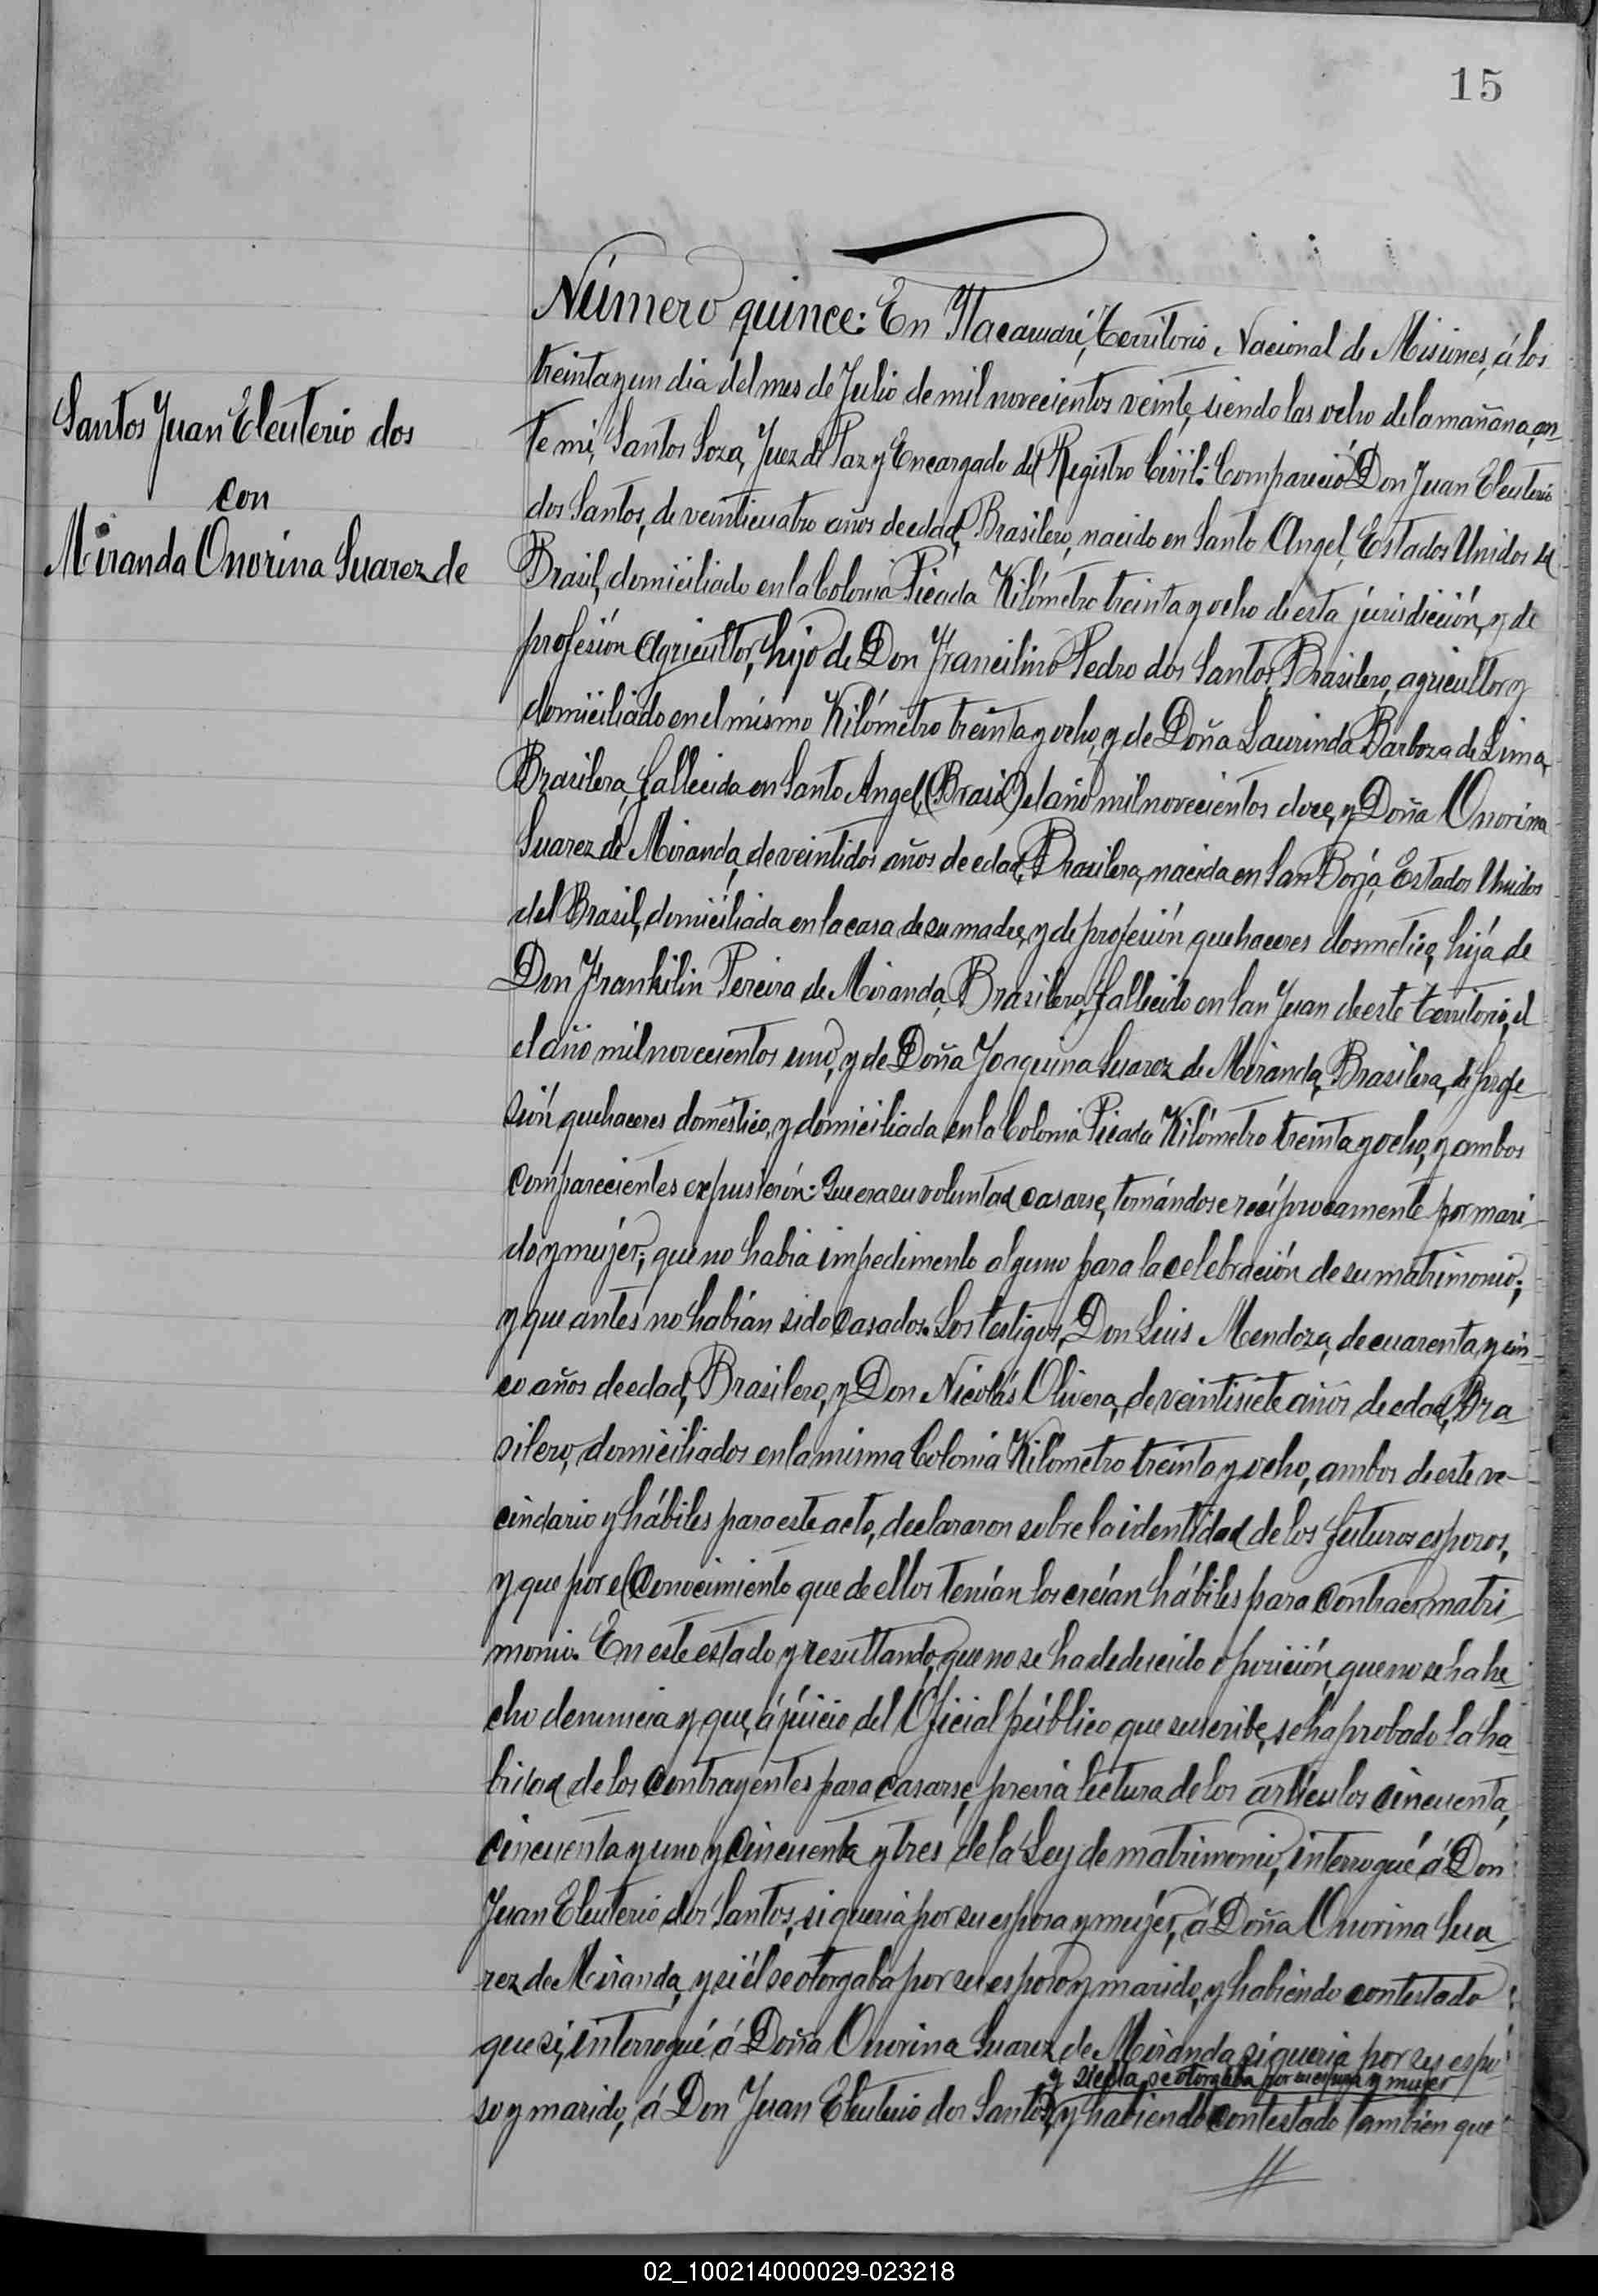 15
Santos Juan Eleuterio dos
con
Miranda Onorina Suarez de
Número quince: En Itacaruaré, territorio Nacional de Misiones, á los
treinta y un dia del mes de Julio de mil novecientos veinte, siendo las ocho de la mañana, an_
te mi, Santos Soza, Juez de Paz y Encargado del Registro Civil: Compareció Don Juan Eleuterio
dos Santos, de veinticuatro años de edad, Brasilero, nacido en Santo Angel, Estados Unidos del
Brasil, domiciliado en la Colonia Picada Kilómetro treinta y ocho de esta jurisdición, y de
profesión agricultor, hijo de Don Francilino Pedro dos Santos, Brasilero, agricultor y
domiciliado en el mismo Kilómetro treinta y ocho, y de Doña Laurinda Barboza de Lima,
Brasilera, fallecida en Santo Angel, (Brasil) el año mil novecientos doce, y Doña Onorina
Suarez de Miranda, de veintidos años de edad, Brasilera, nacida en San Borja, Estados Unidos
del Brasil, domiciliada en la casa de su madre, y de profesión quehaceres dosmetico, hija de
Don Frankilin Pereira de Miranda, Brasilero, fallecido en San Juan de este territorio, el
el año mil novecientos uno, y de Doña Joaquina Suarez de Miranda, Brasilera, de profe_
sión quehaceres doméstico, y domiciliada en la Colonia Picada Kilómetro treinta y ocho, y ambos
comparecientes expusierón: Que era su voluntad casarse, tomándose recíprocamente por mari_
do y mujer; que no habia impedimento alguno para la celebración de su matrimonio;
y que antes no habían sido casados. Los testigos, Don Luis Mendoza, de cuarenta y cin_
co años de edad, Brasilero, y Don Nicolás Olivera, de veintisiete años de edad, Bra_
silero, domiciliados en la misma Colonia Kilómetro treinta y ocho, ambos de este ve_
cindario y hábiles para este acto, declararon sobre la identidad de los futuros esposos,
y que por el conocimiento que de ellos tenían los creían hábiles para contraer matri_
monio. En este estado y resultando, que no se ha dedeucido oposición, que no se ha he_
cho denuncia y que, á júicio del Oficial público que suscribe, se ha probado la ha_
bilidad de los contrayentes para casarse, previa lectura de los artículos cincuenta,
cincuenta y uno y cincuenta y tres de la Ley de matrimonio, interrogué á Don
Juan Eleuterio dos Santos, si queria por su esposa y mujer, á Doña Onorina Sua_
rez de Miranda, y si él se otorgaba por su esposo y marido, y habiendo contestado
que si, interrogué á Doña Onorina Suarez de Miranda si queria por su espo_
y si ella se otorgaba por su esposa y mujer
so y marido, á Don Juan Eleuterio dos Santos, y habiendo contestado tambien que
02_100214000029-023218